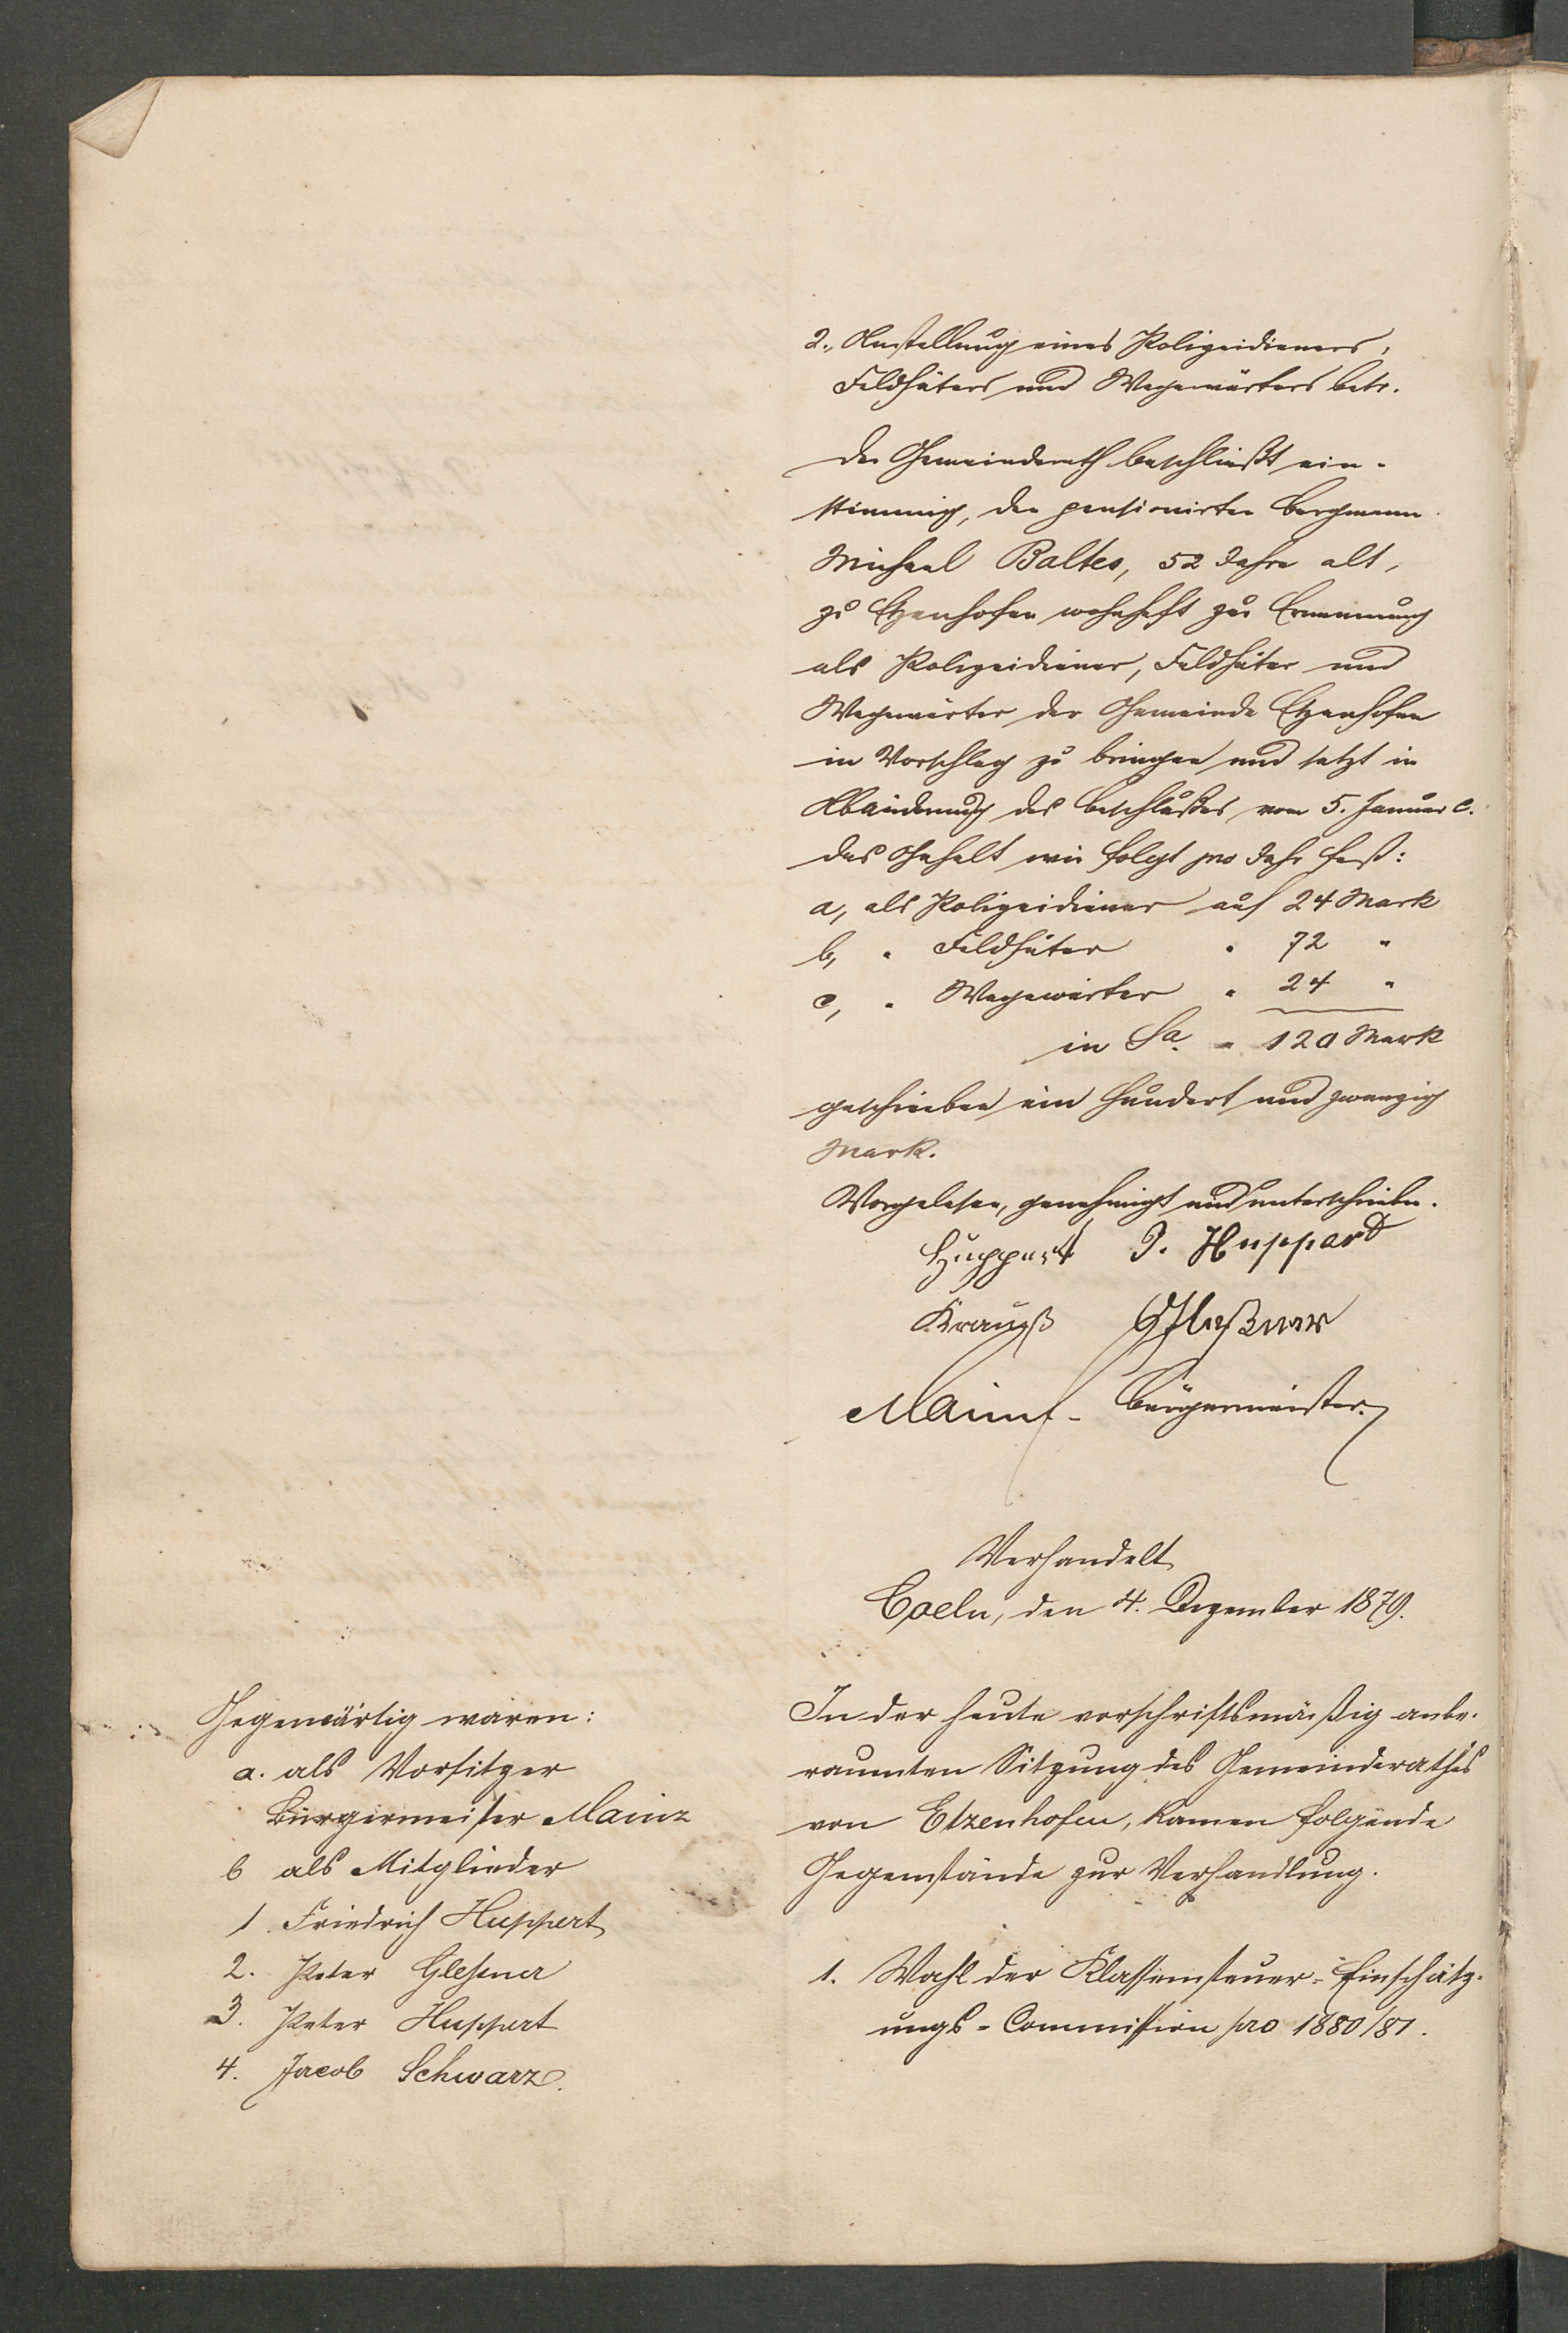 2., Anstellung eines Polizeidieners,
Feldhüters und Wegewärters betr.
Der Gemeinderath beschließt ein-
stimmig, den pensionirten Bergmann
Michael Baltes, 52 Jahre alt,
zu Etzenhofen wohnhaft zur Ernennung
als Polizeidiener, Feldhüter und
Wegewärter der Gemeinde Etzenhofen
in Vorschlag zu bringen und setzt in
Abänderung des Beschlußes vom 5. Januar c.
das Gehalt wie folgt pro Jahr fest:
a, als Polizeidiener auf 24 Mark
b, " Feldhüter " 72 "
c, " Wegewärter " 24 "
in Sa. " 120 Mark
geschrieben ein hundert und zwanzig
Mark.
Vorgelesen, genehmigt und unterschrieben.
Huppert P. Huppert
Krauß Gleßner
Mainz Bürgermeister
Verhandelt
Coeln, den 4. Dezember 1879.
Gegenwärtig waren:
a. als Vorsitzer
Bürgermeister Mainz
b als Mitglieder
1. Friedrich Huppert
2. Peter Gleßner
3. Peter Huppert
4. Jacob Schwarz.
In der heute vorschriftsmäßig anbe-
raumten Sitzung des Gemeinderathes
von Etzenhofen, kamen folgende
Gegenstände zur Verhandlung.
1. Wahl der Klassensteuer-Einschätz-
ungs-Commission pro 1880/81.